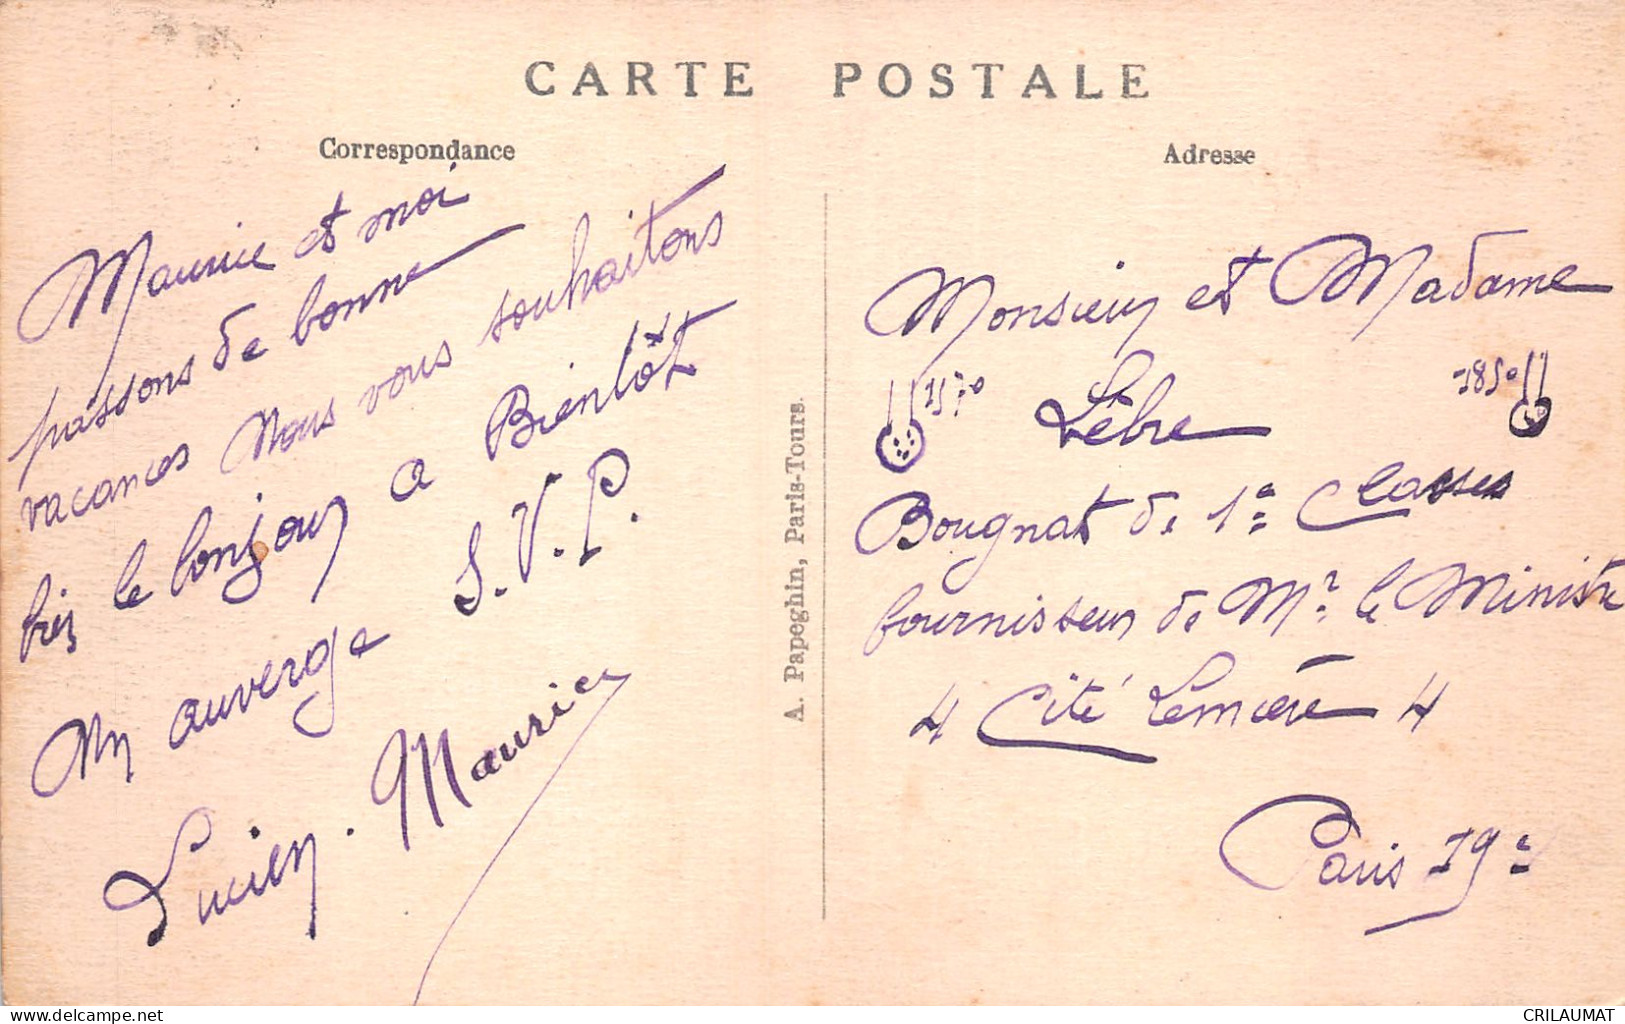 CARTE POSTALE
Correspondance
Maurice et moi
passons de bonne
vacances Nous vous souhaitons
bien le bonjour a Bientôt
S.V.P.
en auverge
Lucien. Maurice
A. Papeghin, Paris-Tours.
Adresse
Monsieur et Madame
Lèbre
1850
Bougnat de 1e Classes
fournisseur de Mr. le Ministre
4 Cité Lemière 4
Paris 19e
CRILAUMAT